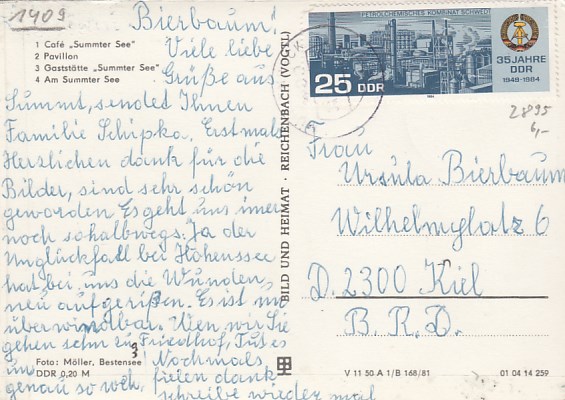 1409
Bierbaum!
1 Café „Summter See"
2 Pavillon
3 Gaststätte „Summter See"
4 Am Summter See
Viele liebe
Grüße aus
Summt, sendet Ihnen
Familie Schipka. Erstmals
Herzlichen dank für die
Bilder, sind sehr schön
geworden Es geht uns imer
noch so halbwegs. Ja der
Unglückfall bei Höhenssee
hat bei uns die Wunden,
neu aufgerißen. Es ist
überwindbar. Wen wir Sie
gehen zu Friedhof, Tut es
un
genau so weh, ! Nochmals
fielen dank
schreibe wieder mal
Foto: Möller, Bestensee
DDR 0,20 M
BILD UND HEIMAT · REICHENBACH (VOGTL)
PETROLCHEMISCHES KOMBINAT SCHWEDT
25 DDR
35 JAHRE
DDR
1949-1984
1984
2895
6,-
Frau
Ursula Bierbaum
Wilhelmplatz 6
D. 2300 Kiel
B. R. D.
V 11 50 A 1/B 168/81
01 04 14 259